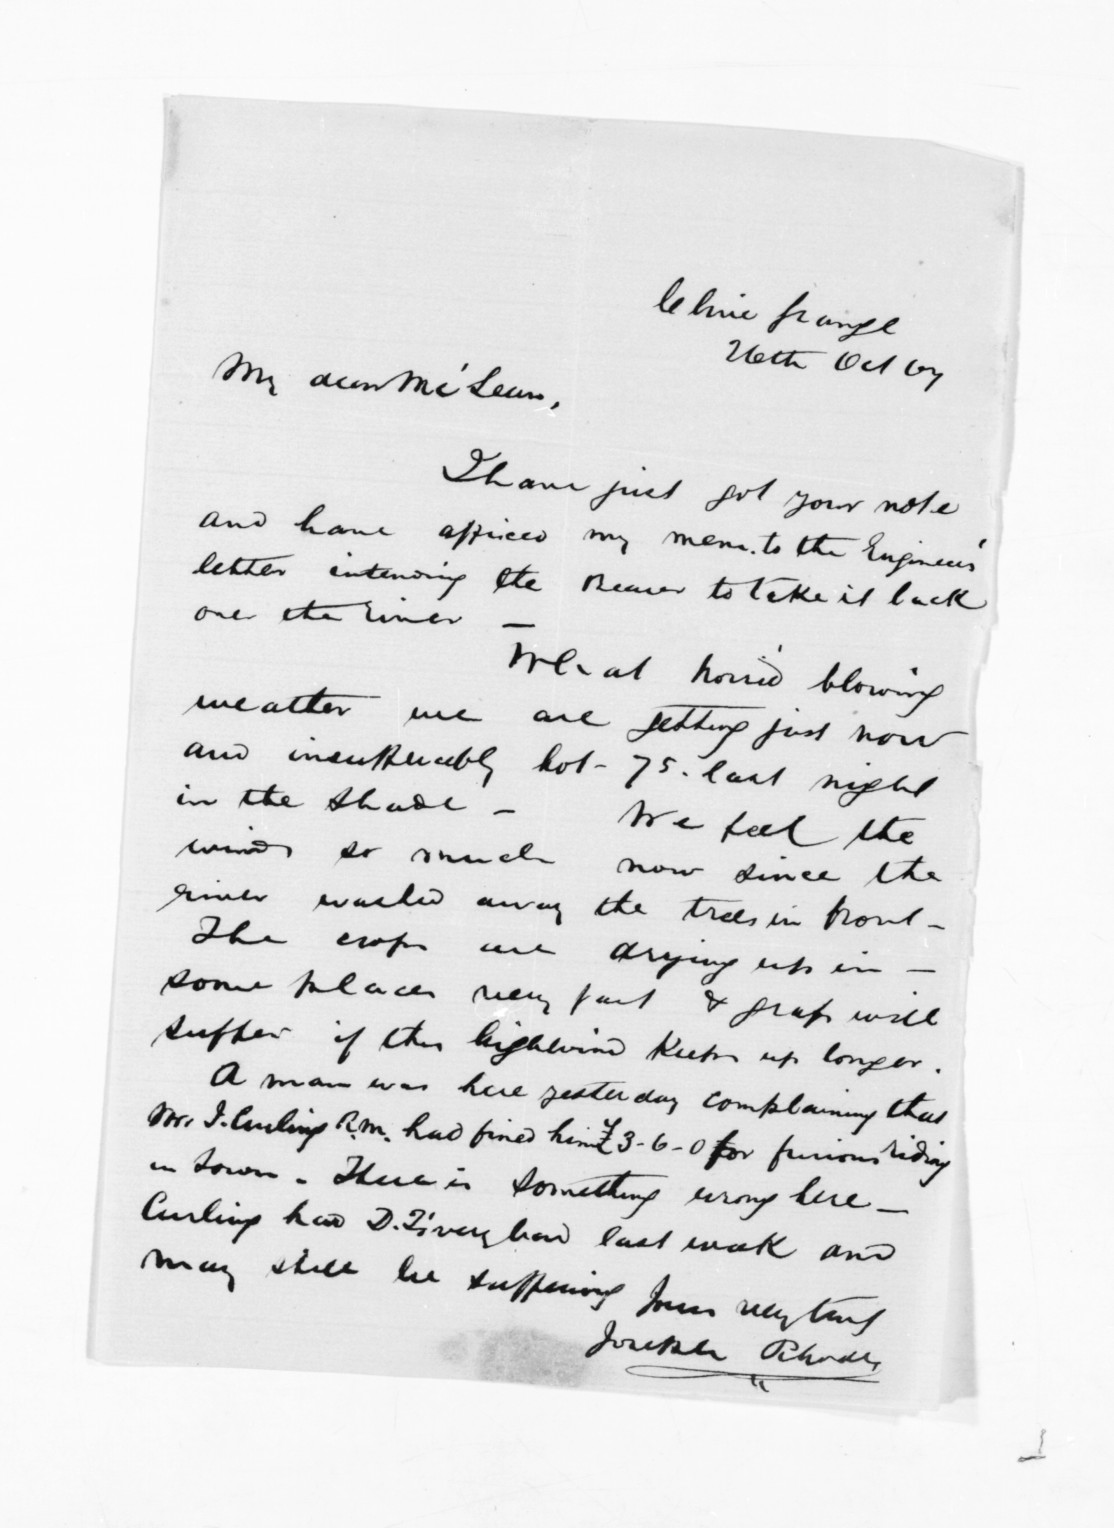 Clive Grange
26th Oct 67
My dear McLean,
I have just got your note
and have affixed my mem. to the Engineers'
letter intending the Bearer to take it back
over the river —
What horrid blowing
weather we are getting just now
and insufferably hot - 75. last night
in the shade - We feel the
winds so much now since the
river washed away the trees in front -
The crops are drying up in -
some places very fast & grass will
suffer if this high wind keeps up longer.
A man was here yesterday complaining that
Mr. J. Curling R.M. had fined him £3-6-0 for furious riding
in town - There is something wrong here -
Curling had D.T's very bad last week and
may still be suffering Yours very truly
Joseph Rhodes